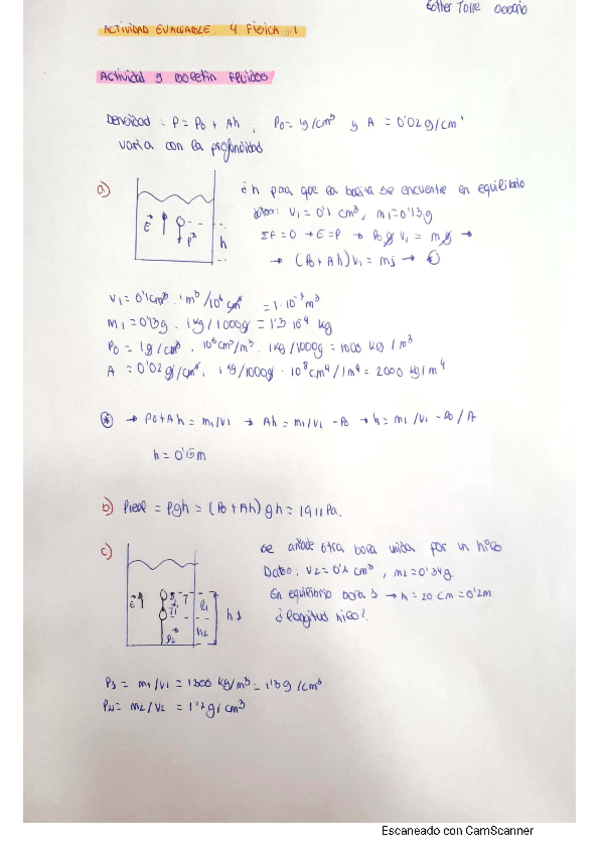 Esther Torre
ACTIVIDAD EVALUABLE 4 FÍSICA 1
Actividad 9 Boletín Fluidos
Densidad: P = P0 + Ah, P0 = 1g/cm³ y A = 0'02g/cm⁴
varía con la profundidad
a) ¿h para que la bolita se encuentre en equilibrio
datos: V1 = 0'1 cm³, m1 = 0'13g
ΣF = 0 → E = P → P0 g V1 = m g →
→ (P0 + Ah) V1 = m1 →
E P h
V1 = 0'1cm³ · 1m³/10⁶ cm³ = 1·10⁻⁷ m³
m1 = 0'13g · 1kg/1000g = 1'3 10⁻⁴ kg
P0 = 1g/cm³ · 10⁶cm³/m³ · 1kg/1000g = 1000 kg/m³
A = 0'02g/cm⁴ · 1kg/1000g · 10⁸cm⁴/1m⁴ = 2000 kg/m⁴
* → P0 + Ah = m1/V1 → Ah = m1/V1 - P0 → h = m1/V1 - P0/A
h = 0'15m
b) Preal = Pgh = (P0 + Ah)gh = 1911Pa.
c) se añade otra bola unida por un hilo
Datos: V2 = 0'2 cm³, m2 = 0'34g
En equilibrio bola 1 → h = 20 cm = 0'2m
¿longitud hilo?
E T l1 h1
P2 h2
P1 = m1/V1 = 1300 kg/m³ = 1'3g/cm³
= m2/V2 = 1'7g/cm³
Escaneado con CamScanner